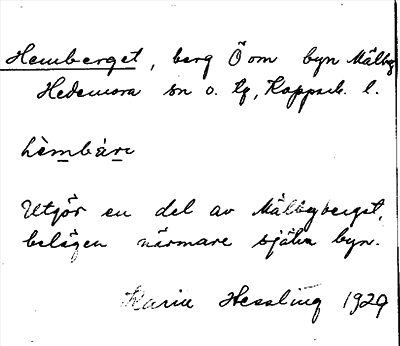 Hemberget, berg Ö om byn Mälby
Hedemora sn o. tg, Kopparb. l.
hèmbárε
Utgör en del av Mälbyberget,
belägen närmare själva byn.
Karin Hessling 1929